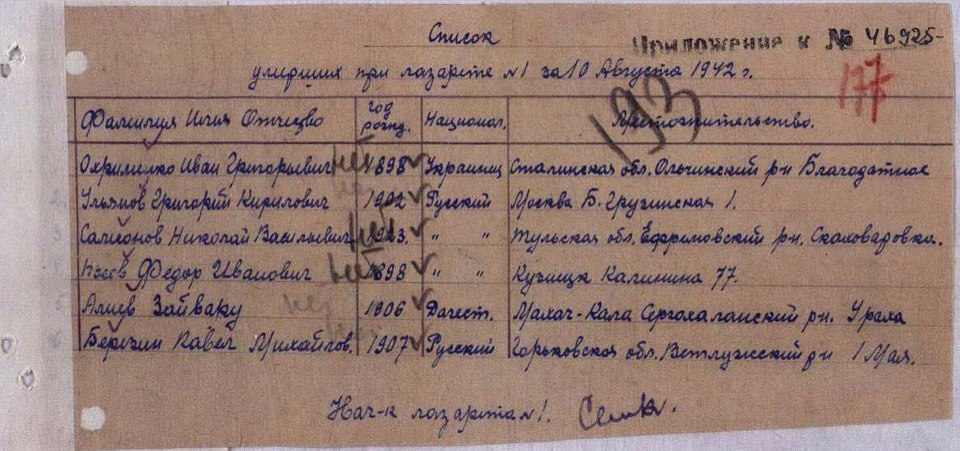 Список
Приложение к № 46925-
умерших при лазарете №1 за 10 Августа 1942 г.
177
193
Фамилия Имя Отчество год рожд. Национал. Местожительство.
Охрименко Иван Григорьевич нет 1898 ✓ Украинец Сталинская обл. Ольгинский р-н Благодатное
Ульянов Григорий Кирилович 1902 ✓ Русский Москва Б. Грузинская 1.
Николай Васильевич нет ✓ " " Тульская обл. Ефремовский р-н.
Федор Иванович нет 1898 ✓ " " Калинина 77.
Алиев нет 1906 ✓ Дагест. Махач-Кала р-н. Урага
Березин Михайлов. 1907 ✓ Русский Горьковская обл. Ветлужский р-н 1 Мая.
Нач-к лазарета №1.